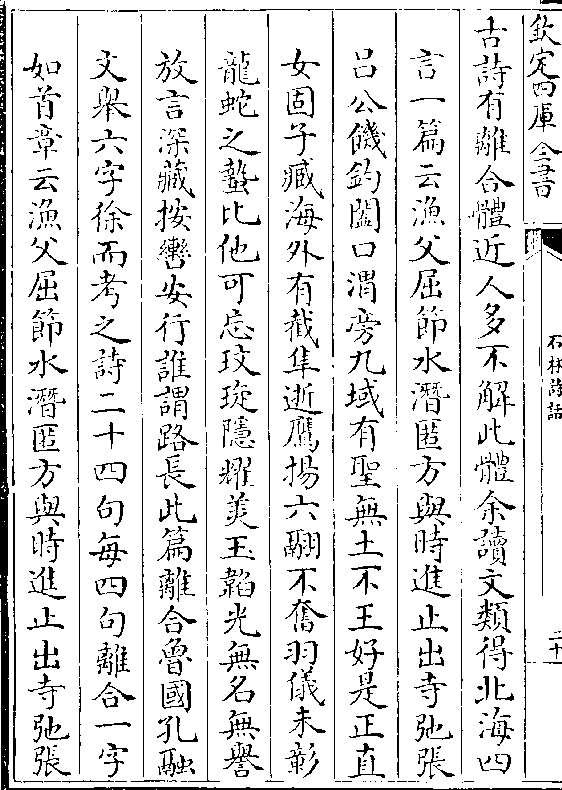 欽定四庫全書
石林詩話
二十
古詩有離合體近人多不解此體余讀文類得北海四
言一篇云漁父屈節水潛匿方與時進止出寺弛張
吕公饑釣闔口渭旁九域有聖無土不王好是正直
女固子臧海外有截隼逝鷹揚六翮不奮羽儀未彰
龍蛇之蟄比他可忘玟琁隱耀美玉韜光無名無譽
放言深藏按轡安行誰謂路長此篇離合魯國孔融
文舉六字徐而考之詩二十四句每四句離合一字
如首章云漁父屈節水潛匿方與時進止出寺弛張